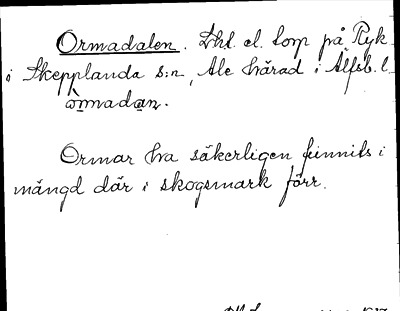 Ormadalen. Dht. el. torp på Ryk
i Skepplanda s:n, Ale härad i Älfsb. l.
òrmadan.
Ormar ha säkerligen funnits i
mängd där i skogsmark förr.